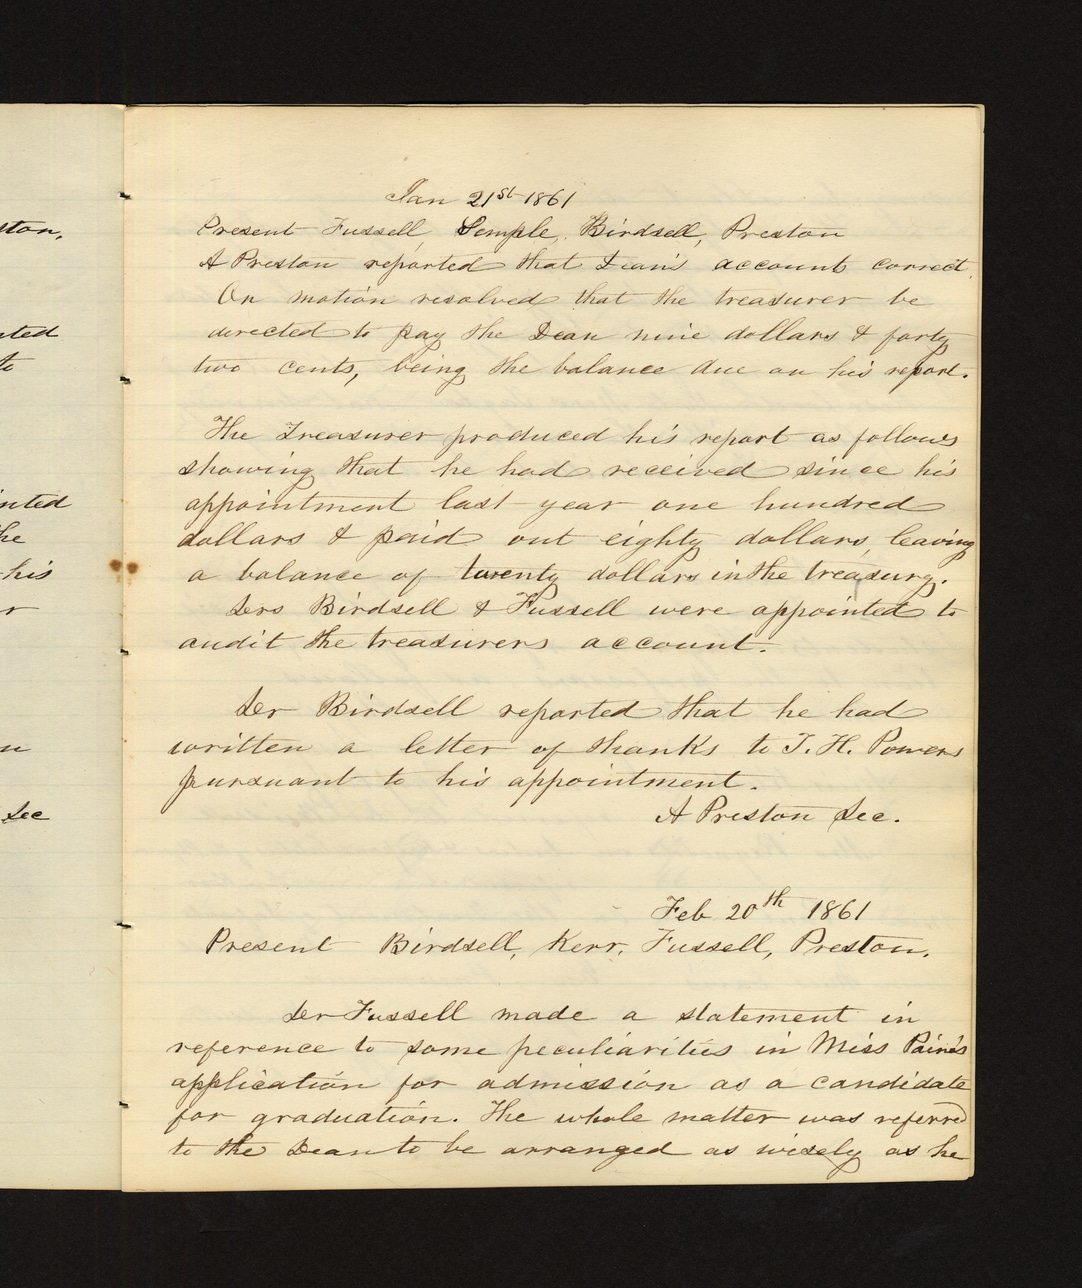 ston,
ated
to
inted
he
his
r
n
Sec
Jan 21st 1861
Present Fussell, Semple, Birdsell, Preston
A Preston reported that Dean's account correct.
On motion resolved that the treasurer be
directed to pay the Dean nine dollars & forty
two cents, being the balance due on his report.
The Treasurer produced his report as follows
showing that he had received since his
appointment last year one hundred
dollars & paid out eighty dollars, leaving
a balance of twenty dollars in the treasury.
Drs Birdsell & Fussell were appointed to
audit the treasurers account.
Dr Birdsell reported that he had
written a letter of thanks to T. H. Powers
pursuant to his appointment.
A Preston Sec.
Feb 20th 1861
Present Birdsell, Kerr, Fussell, Preston.
Dr Fussell made a statement in
reference to some peculiarities in Miss Paine's
application for admission as a candidate
for graduation. The whole matter was referred
to the Dean to be arranged as wisely as he